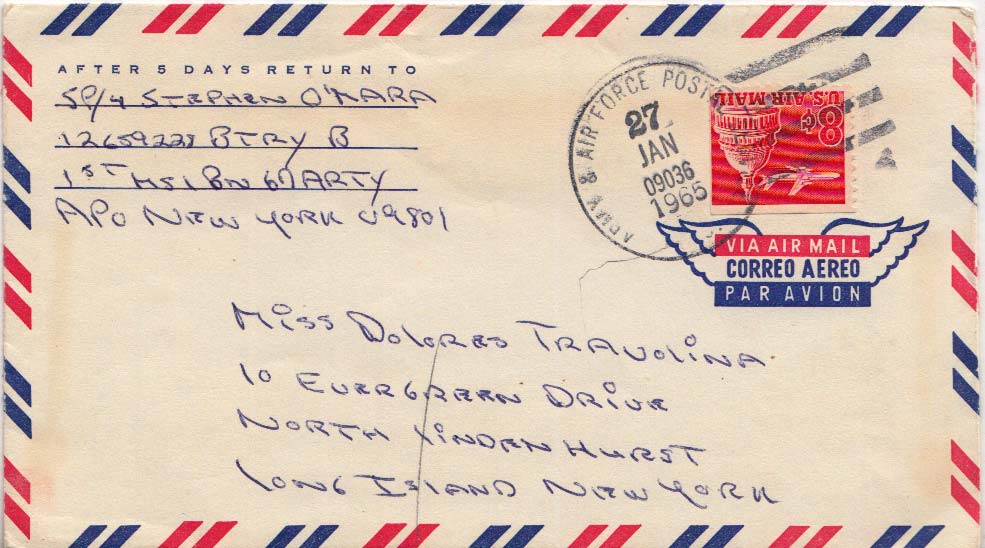 AFTER 5 DAYS RETURN TO
SP/4 STEPHEN O'MARA
12659228 BTRY B
1ST MSL BN 61 ARTY
APO NEW YORK 09801
ARMY & AIR FORCE POSTAL
27
JAN
09036
1965
U.S. AIR MAIL
8¢
VIA AIR MAIL
CORREO AEREO
PAR AVION
MISS DOLORES TRAVOLINA
10 EVERGREEN DRIVE
NORTH LINDENHURST
LONG ISLAND NEW YORK